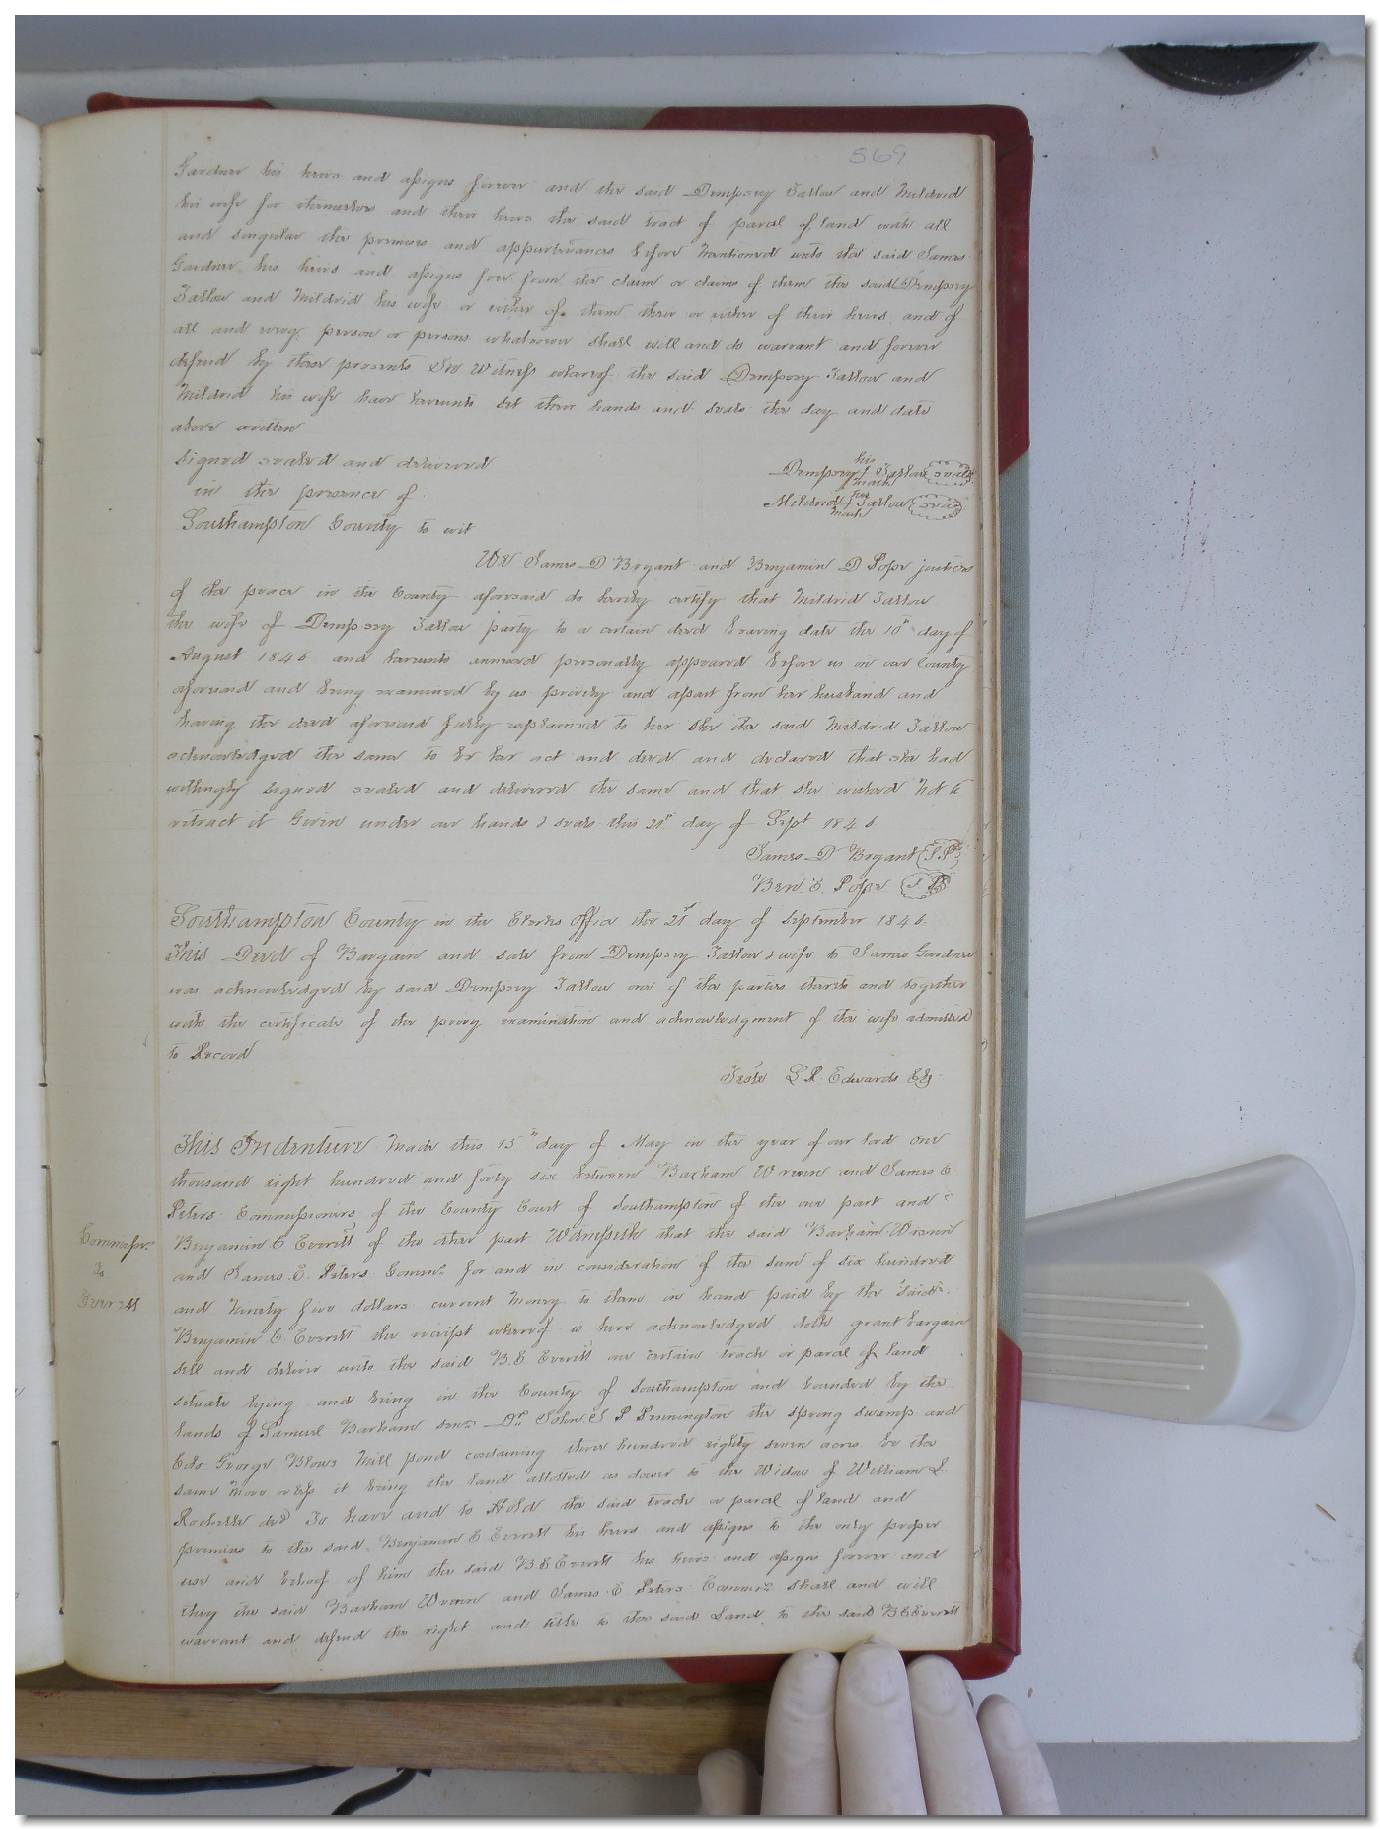 569
Gardner his heirs and assigns forever and the said Dempsey Tallow and Mildrid
his wife for themselves and their heirs the said tract of parcel of land with all
and singular the premises and appurtenances before mentioned unto the said James
Gardner his heirs and assigns free from the claim or claims of them the said Dempsey
Tallow and Mildrid his wife or either of them their or either of their heirs and of
all and every person or persons whatsoever shall will and do warrant and forever
defend by these presents In Witness whereof the said Dempsey Tallow and
Mildrid his wife have hereunto set their hands and seals the day and date
above written
signed sealed and delivered
in the presence of
his
Dempsey Tallow seal
mark
her
Mildred Tallow seal
mark
Southampton County to wit
We James D Bryant and Benjamin D Pope justices
of the peace in the County aforesaid do hereby certify that Mildrid Tallow
the wife of Dempsey Tallow party to a certain deed bearing date the 10th day of
August 1846 and hereunto annexed personally appeared before us in our County
aforesaid and being examined by us privily and apart from her husband and
having the deed aforesaid fully explained to her she the said Mildrid Tallow
acknowledged the same to be her act and deed and declared that she had
willingly signed sealed and delivered the same and that she wished not to
retract it Given under our hands & seals this 21st day of Sept 1846
James D Bryant J.P.
Ben. E. Pope J P
Southampton County in the Clerks office the 21st day of September 1846.
This Deed of Bargain and sale from Dempsey Tallow & wife to James Gardner
was acknowledged by said Dempsey Tallow one of the parties thereto and together
with the certificate of the privy examination and acknowledgment of the wife admitted
to Record
Teste L R Edwards Clk
This Indenture Made this 15th day of May in the year of our lord one
thousand eight hundred and forty six between Barham Wrenn and James E
Peters Commissioners of the County Court of Southampton of the one part and
Commissrs
to
Everett
Benjamin E Everett of the other part Witnesseth that the said Barham Wrenn
and James E. Peters Commrs for and in consideration of the sum of six hundred
and Ninety five dollars current money to them in hand paid by the said
Benjamin E. Everett the receipt whereof is here acknowledged doth grant bargain
sell and deliver unto the said B. E Everett one certain track or parcel of land
situate lying and being in the County of Southampton and bounded by the
lands of Samuel Barham senr Dr John S P Pennington the spring swamp and
George Blows Mill pond containing three hundred eighty seven acres be the
same more or less it being the land allotted as dower to the Widow of William L
Rochelle decd To have and to Hold the said track or parcel of land and
premises to the said Benjamin E Everett his heirs and assigns to the only proper
use and behoof of him the said B. E Everett his heirs and assigns forever and
they the said Barham Wrenn and James E Peters Commrs shall and will
warrant and defend the right and title to the said Land to the said B E Everett